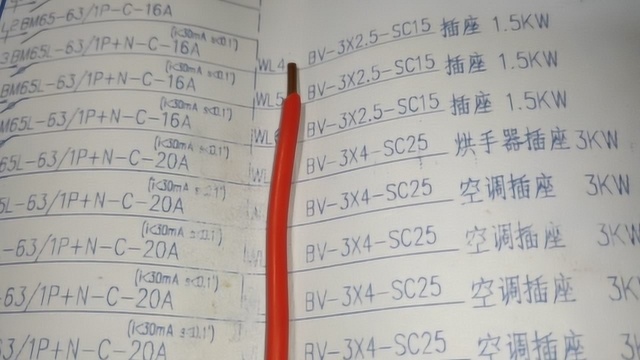 BM65-63/1P-C-16A
BM65L-63/1P+N-C-16A (I<30mA ≤0.1") WL4 BV-3X2.5-SC15 插座 1.5KW
BM65L-63/1P+N-C-16A (I<30mA ≤0.1") WL5 BV-3X2.5-SC15 插座 1.5KW
M65L-63/1P+N-C-16A (I<30mA ≤0.1") WL BV-3X2.5-SC15 插座 1.5KW
65L-63/1P+N-C-20A (I<30mA ≤0.1") BV-3X4-SC25 烘手器插座 3KW
5L-63/1P+N-C-20A (I<30mA ≤0.1") BV-3X4-SC25 空调插座 3KW
-63/1P+N-C-20A (I<30mA ≤0.1") BV-3X4-SC25 空调插座 3KW
-63/1P+N-C-20A (I<30mA ≤0.1") BV-3X4-SC25 空调插座 3K
63/1P+N-C-20A (I<30mA ≤0.1") BV-3X4-SC25 空调插座 3K